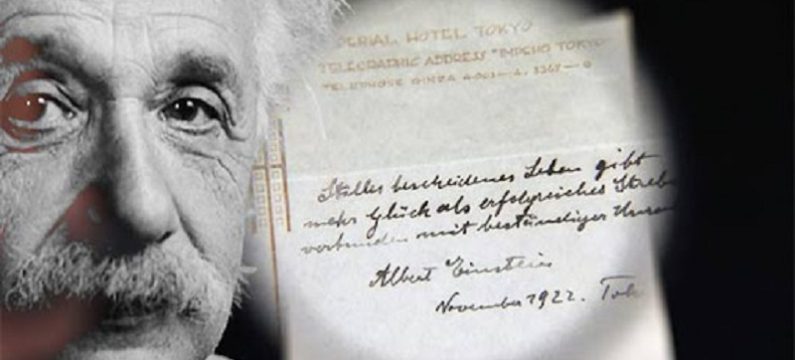 PERIAL HOTEL TOKYO
TELEGRAPHIC ADDRESS "IMPEHO TOKYO
TELEPHONE GINZA
Stilles bescheidenes Leben gibt
mehr Glück als erfolgreiches Streben
verbunden mit beständiger Unruh
Albert Einstein
November 1922. Tok